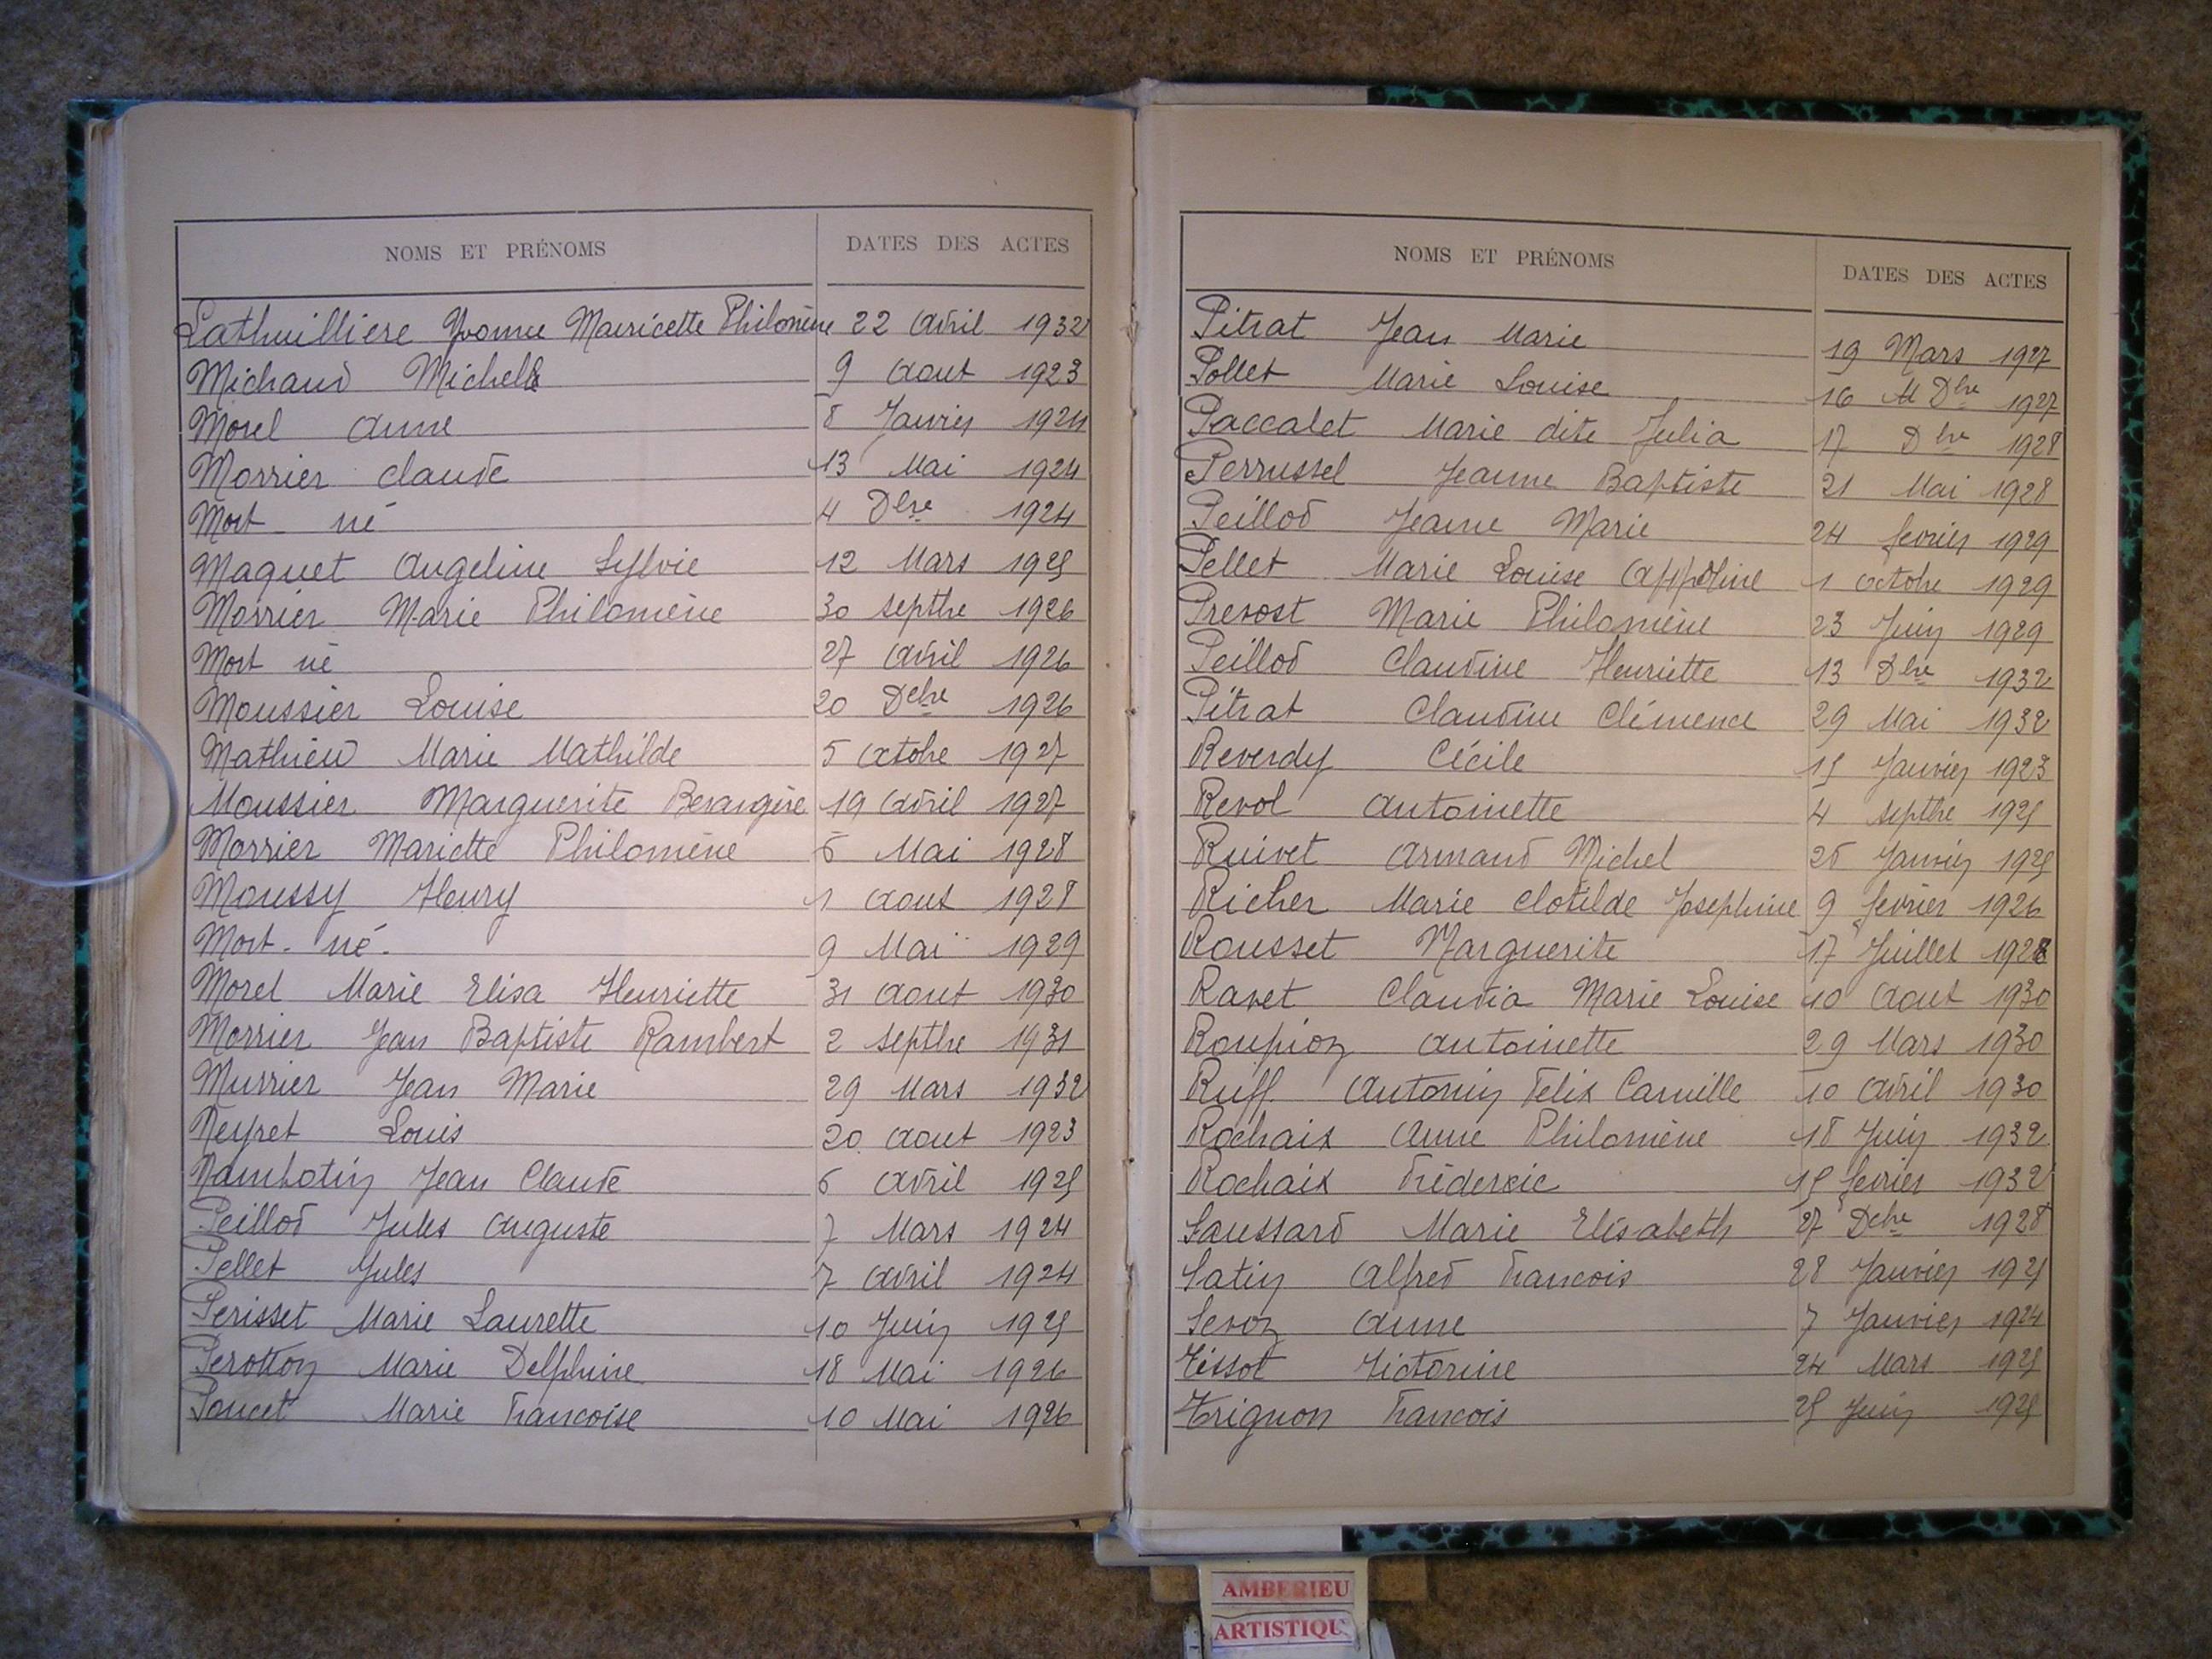 NOMS ET PRÉNOMS DATES DES ACTES
Lathuilliere Yvonne Mauricette Philomène 22 avril 1932
Michaud Michel 9 aout 1923
Morel Anne 8 Janvier 1924
Morrier Claude 13 Mai 1924
Mort né 4 Dbre 1924
Maquet Angeline Sylvie 12 Mars 1925
Morrier Marie Philomène 30 septbre 1926
Mort né 27 avril 1926
Moussier Louise 20 Dcbre 1926
Mathieu Marie Mathilde 5 octobre 1927
Moussier Marguerite Berangère 19 avril 1927
Morrier Mariette Philomène 6 Mai 1928
Moussy Henry 1 aout 1928
Mort-né- 9 Maï 1929
Morel Marie Elisa Henriette 31 aout 1930
Morrier Jean Baptiste Rambert 2 septbre 1931
Murrier Jean Marie 29 Mars 1932
Neyret Louis 20 aout 1923
Nambotin Jean Claude 6 avril 1925
Peillod Jules Auguste 7 Mars 1924
Pellet Jules 7 avril 1924
Perisset Marie Laurette 10 Juin 1925
Perotton Marie Delphine 18 Mai 1926
Poncet Marie Francoise 10 Mai 1926
NOMS ET PRÉNOMS DATES DES ACTES
Pitrat Jean Marie 19 Mars 1927
Pollet Marie Louise 16 Dbre 1927
Paccalet Marie dite Julia 17 Dbre 1928
Perrussel Jeanne Baptiste 21 Mai 1928
Peillod Jeanne Marie 24 fevrier 1929
Pellet Marie Louise Appoline 1 octobre 1929
Prevost Marie Philomène 23 Juin 1929
Peillod Claudine Henriette 13 Dbre 1932
Pitrat Claudine Clémence 29 Mai 1932
Reverdy Cécile 15 Janvier 1923
Revol Antoinette 4 septbre 1925
Ruivet Armand Michel 26 Janvier 1925
Richer Marie Clotilde Josephine 9 fevrier 1926
Rousset Marguerite 17 Juillet 1928
Ravet Claudia Marie Louise 10 aout 1930
Roupion Antoinette 29 Mars 1930
Ruff Antonin Felix Camille 10 avril 1930
Rochaix Anne Philomène 18 Juin 1932
Rochaix Fréderic 15 fevrier 1932
Saussard Marie Elisabeth 27 Dcbre 1928
Satin Alfred Francois 28 Janvier 1925
Sevoz Anne 7 Janvier 1924
Tissot Victorine 24 Mars 1925
Trignon Francois 25 Juin 1925
AMBERIEU
ARTISTIQU